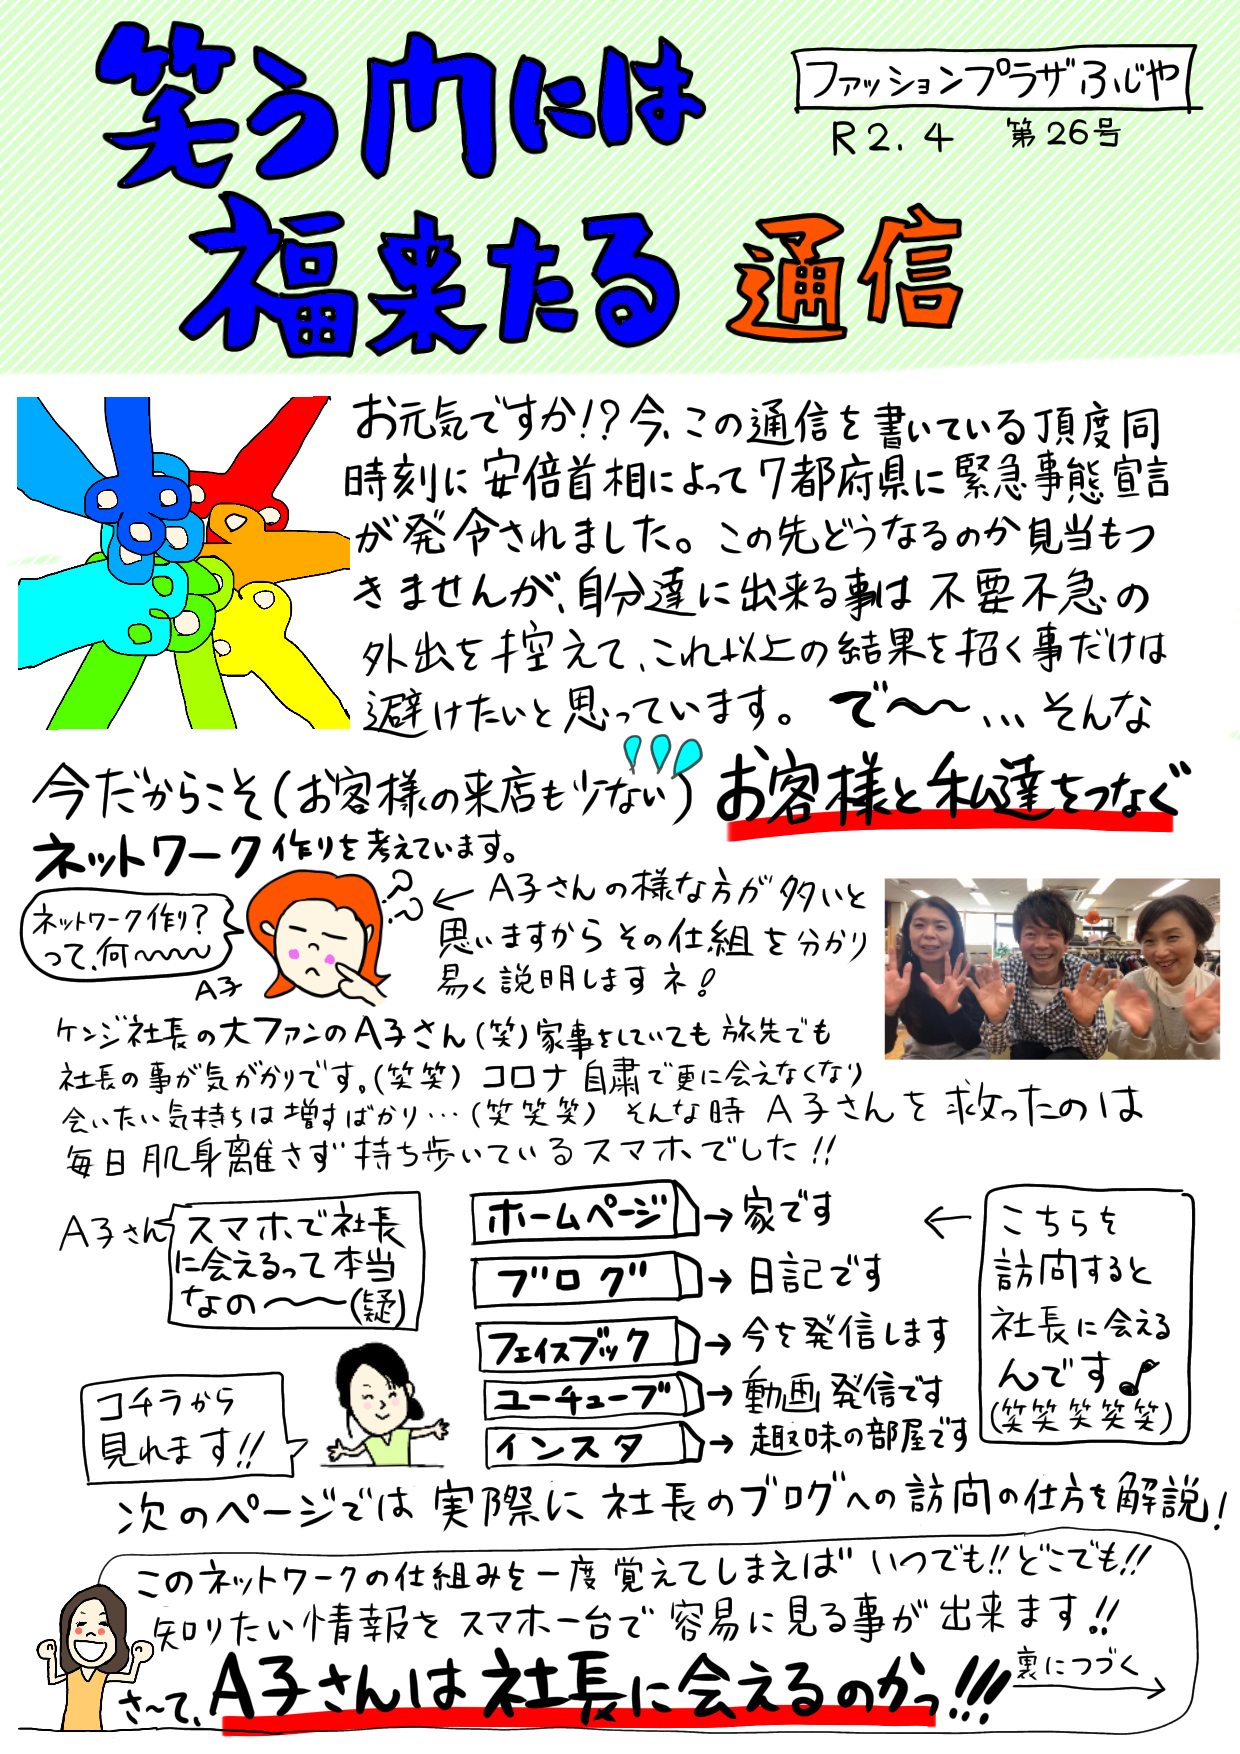 笑う巾には
福来たる 通信
ファッションプラザふじや
R2.4 第26号
お元気ですか!?今、この通信を書いている頂度同
時刻に安倍首相によって7都府県に緊急事態宣言
が発令されました。この先どうなるのか見当もつ
きませんが、自分達に出来る事は不要不急の
外出を控えて、これ以上の結果を招く事だけは
避けたいと思っています。で〜〜...そんな
今だからこそ(お客様の来店も少ない)お客様と私達をつなぐ
ネットワーク作りを考えています。
ネットワーク作り?
って、何〜〜〜
A子
??
← A子さんの様な方が多いと
思いますからその仕組を分かり
易く説明しますネ!
ケンジ社長の大ファンのA子さん(笑)家事をしていても旅先でも
社長の事が気がかりです。(笑笑) コロナ自粛で更に会えなくなり
会いたい気持ちは増すばかり…(笑笑笑) そんな時A子さんを救ったのは
毎日肌身離さず持ち歩いているスマホでした!!
A子さん
スマホで社長
に会えるって本当
なの〜〜(疑)
ホームページ→家です
ブログ→日記です
フェイスブック→今を発信します
ユーチューブ→動画発信です
インスタ→趣味の部屋です
← こちらを
訪問すると
社長に会える
んです♪
(笑笑笑笑笑)
コチラから
見れます!!
次のページでは実際に社長のブログへの訪問の仕方を解説!
このネットワークの仕組みを一度覚えてしまえばいつでも!!どこでも!!
知りたい情報をスマホ一台で容易に見る事が出来ます!!
さ〜て、A子さんは社長に会えるのかっ!!!
裏につづく→